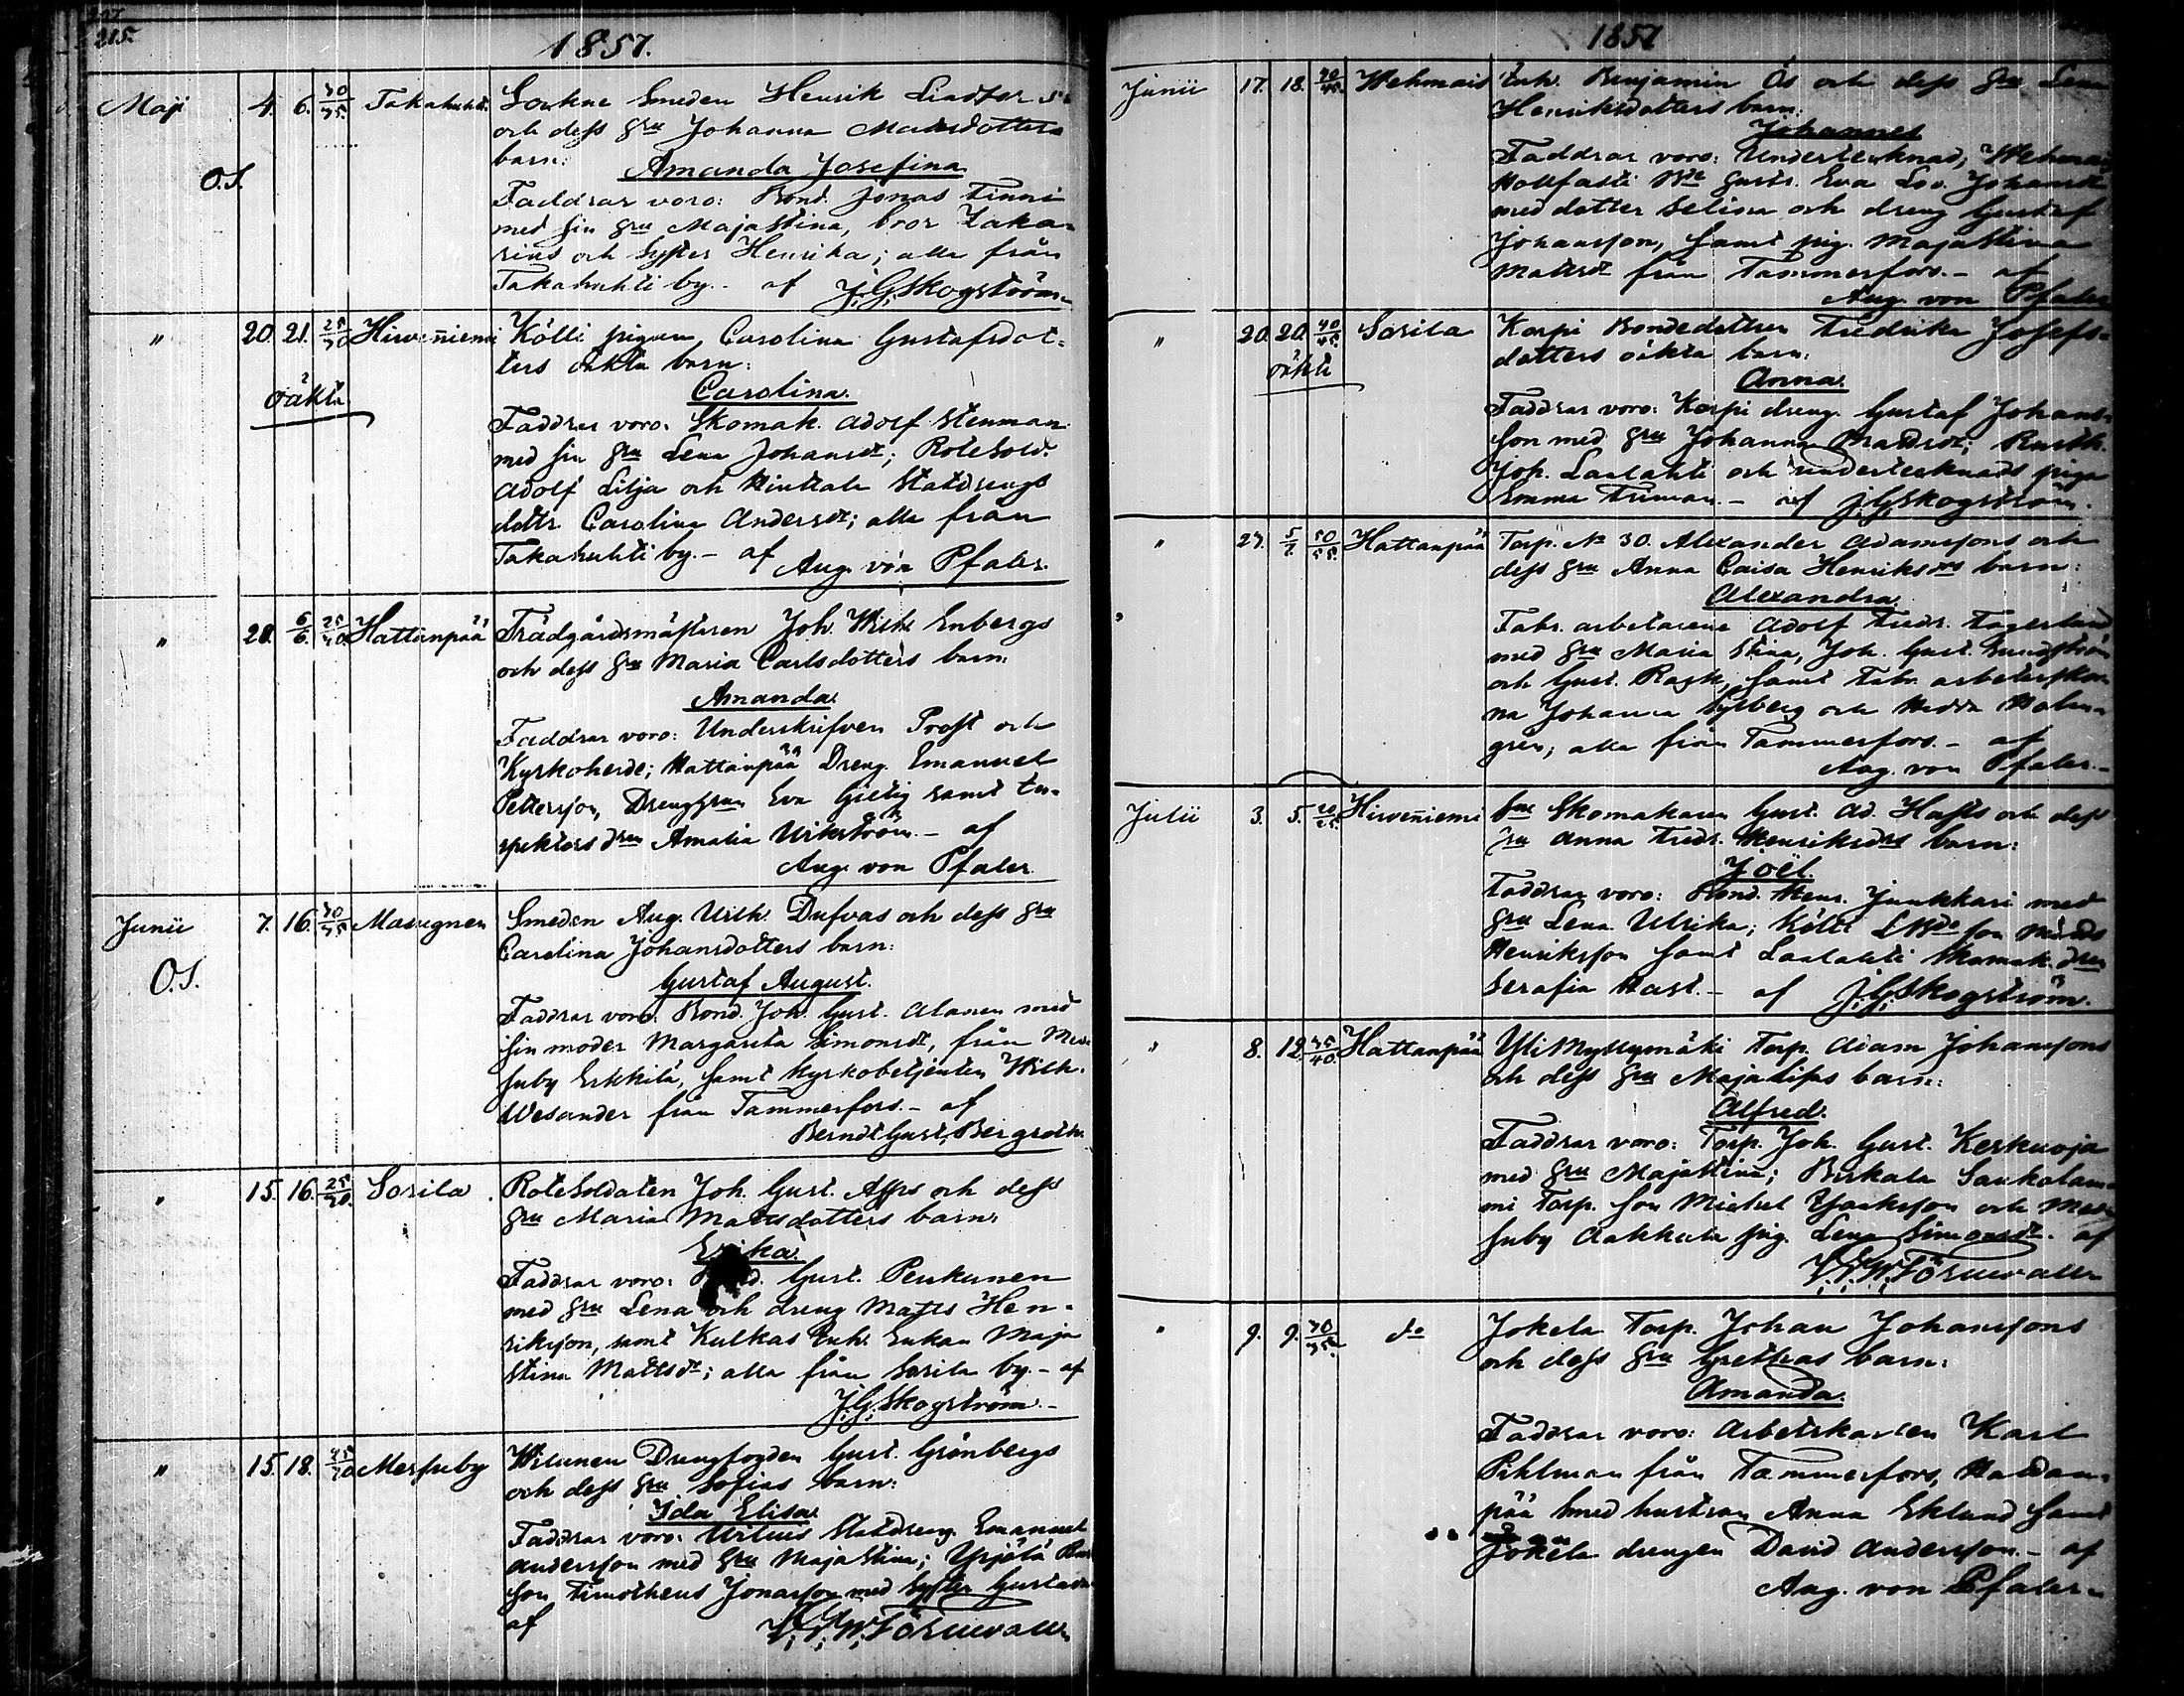 215.
1857.
Maji 4. 6. 30/35. Takahuhti. Sockne Smeden Henrik
och dess hru Johanna Matsdotters
barn:
Amanda Josefina
O.S.
Faddrar voro: Bond. Jonas Finni
med sin hru Majastina, bror Zaka-
rius och Syster Henrika; alla från
Takahuhti by. - af J.G. Skogström
" 20. 21. 25/30 Hirweniemi Kölli pigan Carolina Gustafsdot-
ters oäkta barn:
oäkta
Carolina.
Faddrar voro: Skomak. Adolf Stenman
med sin hru Lena Johansdt; RoteSold.
Adolf Lilja och Statdrengs
dottr. Carolina Andersdt; alla från
Takahuhti by. - af Aug. von Pfaler.
" 28. 6/6. 25/40. Hattanpää Trädgårdsmästaren Joh. Wilh. Enbergs
och dess hru Maria Carlsdotters barn:
Amanda.
Faddrar voro: Underskrifven Prost och
Kyrkoherde; Hattanpää Dreng. Emanuel
Pettersson, Drenghrun Eva samt In-
spektorsdren Amalia Wikström. - af
Aug. von Pfaler.
Junii 7. 16. 30/35 Masugnen Smeden Aug. Wilh. Dufvas och dess hru
Carolina Johansdotters barn:
O.S.
Gustaf August.
Faddrar voro: Bond. Joh. Gust. Alanen med
sin moder Margareta Simonsdt, från Mes-
suby Erkkilä, samt Kyrkobetjenten Wilh.
Wesander från Tammerfors. - af
Berndt Gust. Bergroth.
" 15. 16. 25/30. Sorila RoteSoldaten Joh. Gust. Asps och dess
hru Maria Mattsdotters barn:
Erika.
Faddrar voro: Bond. Gust. Penkunen
med hru Lena och dreng Matts Hen-
riksson, samt Kulkas Enk. Enkan Maja
Stina Mattsdt; alla från Sorila by. - af
J.G. Skogström. -
" 15. 18. 45/50 Messuby Wilunen Drengfogden Gust. Grönbergs
och dess hru Sofias barn:
Ida Elisa.
Faddrar voro: Wiluns Statdreng. Emanuel
Andersson med hru Majastina; Yrjölä
son Timotheus Jonasson med Syster Gustava
af Törnewall
1857
Junii 17. 18. 40/45. Wehmais Enh. Benjamin Ös och dess hru Lena
Henriksdotters barn:
Johannes
Faddrar voro: Undertecknad; Wehmais
Hollfasti Gustr. Eva Lov. Johansdt
med dotter Selina och dreng Gustaf
Johansson, samt pig. Majastina
Mattsdt från Tammerfors. - af
Aug. von Pfaler
" 20. 20. 40/45. Sorila Korpi Bondedottren Fredrika Josefs-
dotters oäkta barn:
oäkta
Anna.
Faddrar voro: Korpi dreng. Gustaf Johans-
son med hru Johanna Mattsdt; Rusth.
Joh. Laalahti och undertecknads piga
Emma - af J.G. Skogström.
" 27. 5/7. 50/55. Hattanpää Torp. No 30. Alexander Adamssons och
dess hru Anna Caisa Henriksdrs barn:
Alexandra.
Fabr. arbetarene Adolf Fredr. Fagerlund
med hru Maria Stina, Joh. Gust. Sundström
och Gust. Rask, samt Fabr. arbeterskor-
na Johanna Sjöberg och Hedda Holm-
gren; alla från Tammerfors. - af
Aug. von Pfaler. -
Julii 3. 5. 20/25. Hirweniemi Skomakaren Gust. Ad. Hasts och dess
hru Anna Fredr. Henriksdrs barn:
Joël.
Faddrar voro: Bond. Henr. Junkkari med
hru Lena Ulrika; Kölli son
Henriksson samt Laalahti Skomak. dren
Serafia Hast. - af J.G. Skogström.
" 8. 12. 35/40. Hattanpää Yli Myllymäki Torp. Adam Johanssons
och dess hru Majalisas barn:
Alfred.
Faddrar voro: Torp. Joh. Gust. Kerkuoja
med hru Majastina; Birkala Sankolam-
mi Torp. son Michel Isaksson och Mes-
suby Aakkula pig. Lena Simonsdt. af
Törnewall
" 9. 9. 30/35. do Jokela Torp. Johan Johanssons
och dess hru Grethas barn:
Amanda.
Faddrar voro: Arbetskarlen Karl
Pihlman från Tammerfors, Hattan-
pää Smed hustrun Anna Eklund samt
Jokela drengen David Andersson. - af
Aug. von Pfaler. -